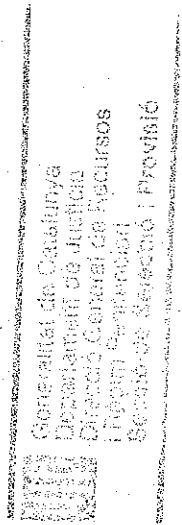 Generalitat de Catalunya
Departament de Justícia
Direcció General de Recursos
i Règim Penitenciari
Servei de Selecció i Provisió